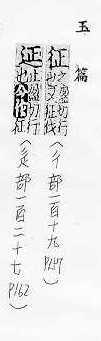 玉篇
征 之盈切行也又征伐（彳部一百十九 P147）
止盈切行也今作征（辵部一百二十七 P162）